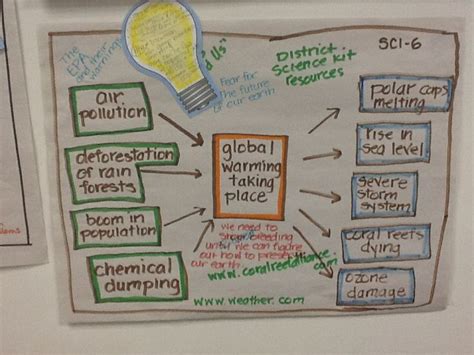 The
EPA
and their
warning
d Us"
Fear for
the future
of our earth
District
Science kit
resources
SCI-6
air
pollution
deforestation
of rain
forests
boom in
population
chemical
dumping
global
warming
taking
place
we need to
stop
until we can figure
out how to preserve
our earth
www.coralreefalliance.com
www.weather.com
polar caps
melting
rise in
sea level
severe
storm
system
coral reefs
dying
ozone
damage